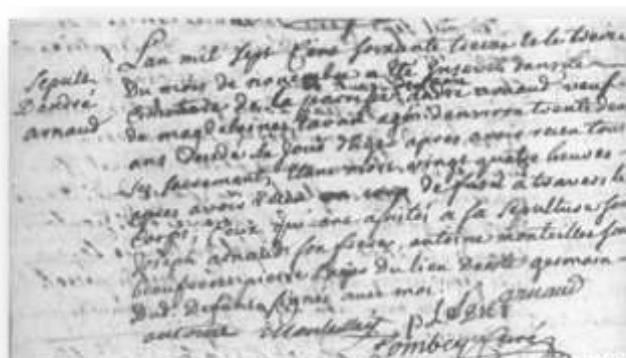 Sepult.
D'andré
arnaud
L'an mil sept Cens soixante treize & le treize
Du mois de novembre a été dans le
de la paroisse andré arnaud veuf
de magdeleine agé d'environ trente deux
ans Decedé le jour après avoir receu tous
Ses sacrements, mort vingt quatre heures
apres avoir un coup de fusil à travers le
Corps; Ceux qui ont assisté a sa Sepulture sont
Joseph arnaud son frere, antoine monteillet son
beaufrere pierre du lieu germain
Dud. defunt signés avec moi
arnaud
antoine Monteillet
Combey Curé